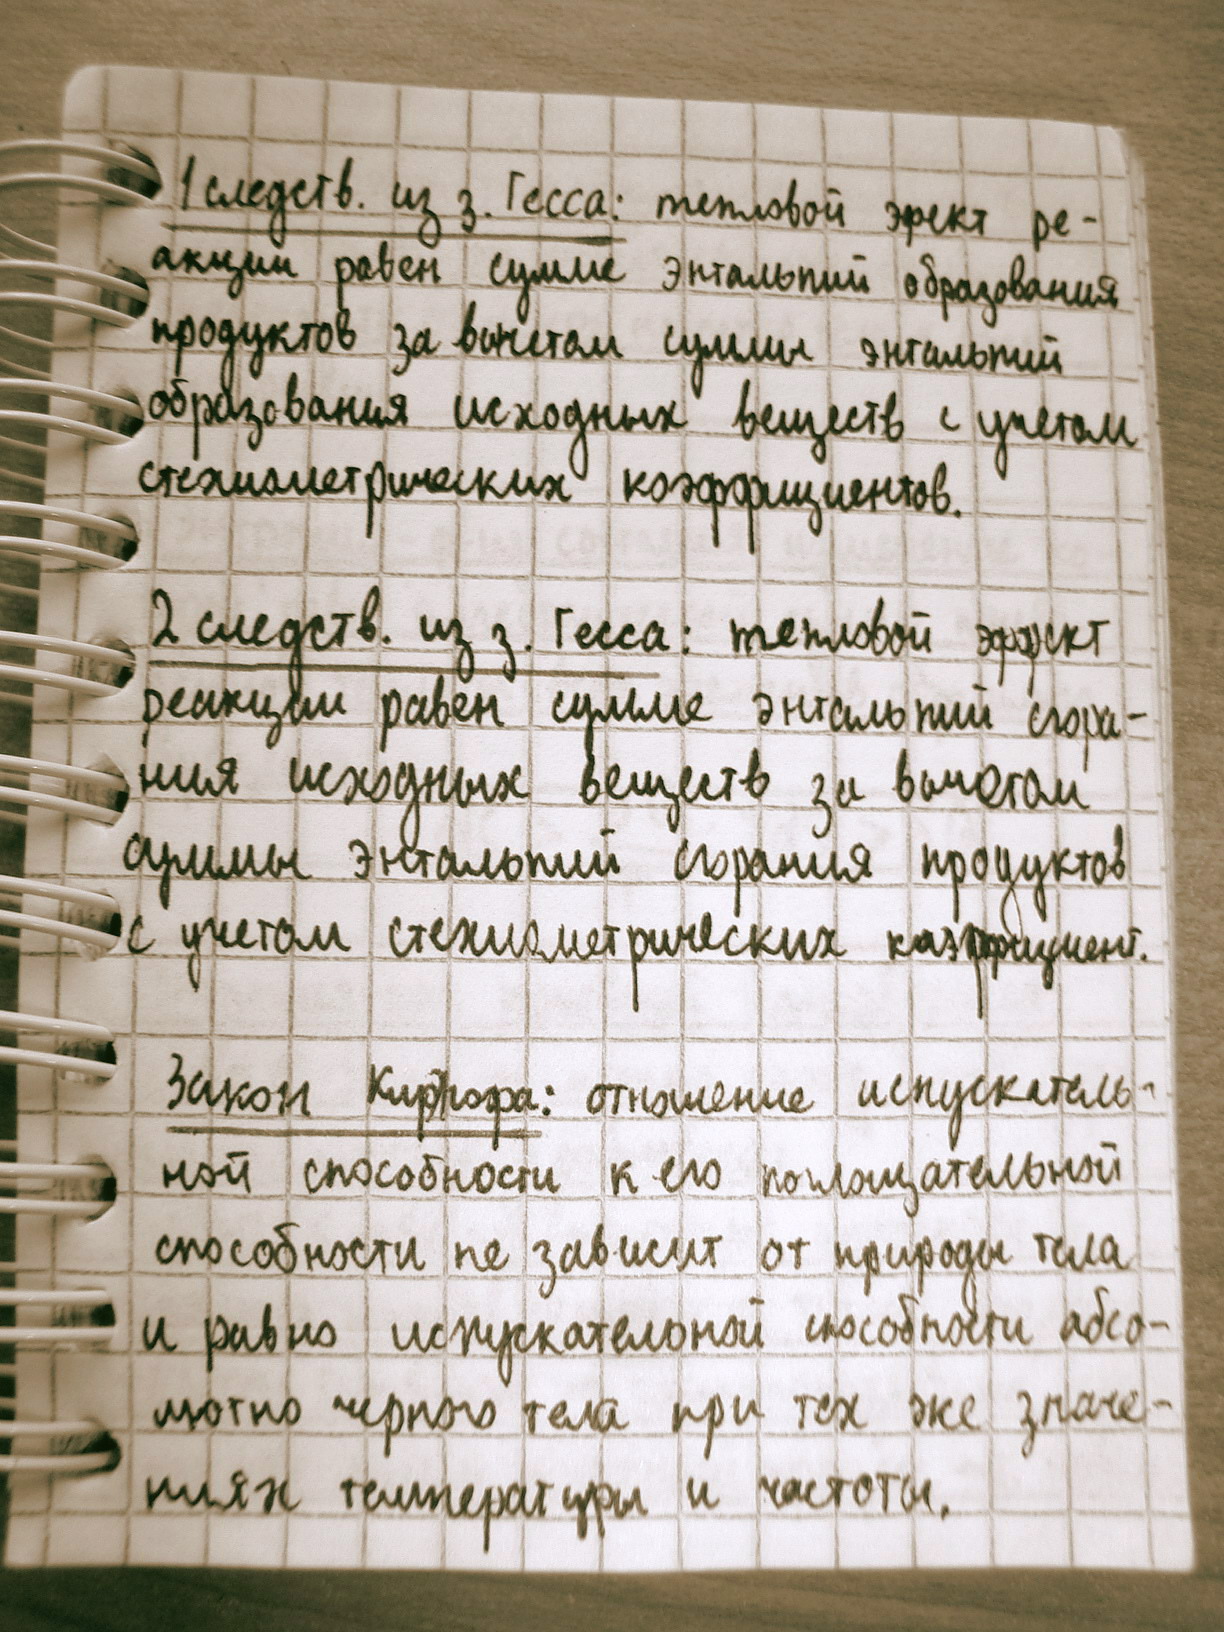 1 следств. из з. Гесса: тепловой эфект ре-
акции равен сумме энтальпий образования
продуктов за вычетом суммы энтальпий
образования исходных веществ с учетом
стехиометрических коэффициентов.
2 следств. из з. Гесса: тепловой эффект
реакции равен сумме энтальпий сгора-
ния исходных веществ за вычетом
суммы энтальпий сгорания продуктов
с учетом стехиометрических коэффициент.
Закон Кирхгофа: отношение испускатель-
ной способности к его поглощательной
способности не зависит от природы тела
и равно испускательной способности абсо-
лютно черного тела при тех же значе-
ниях температуры и частоты.